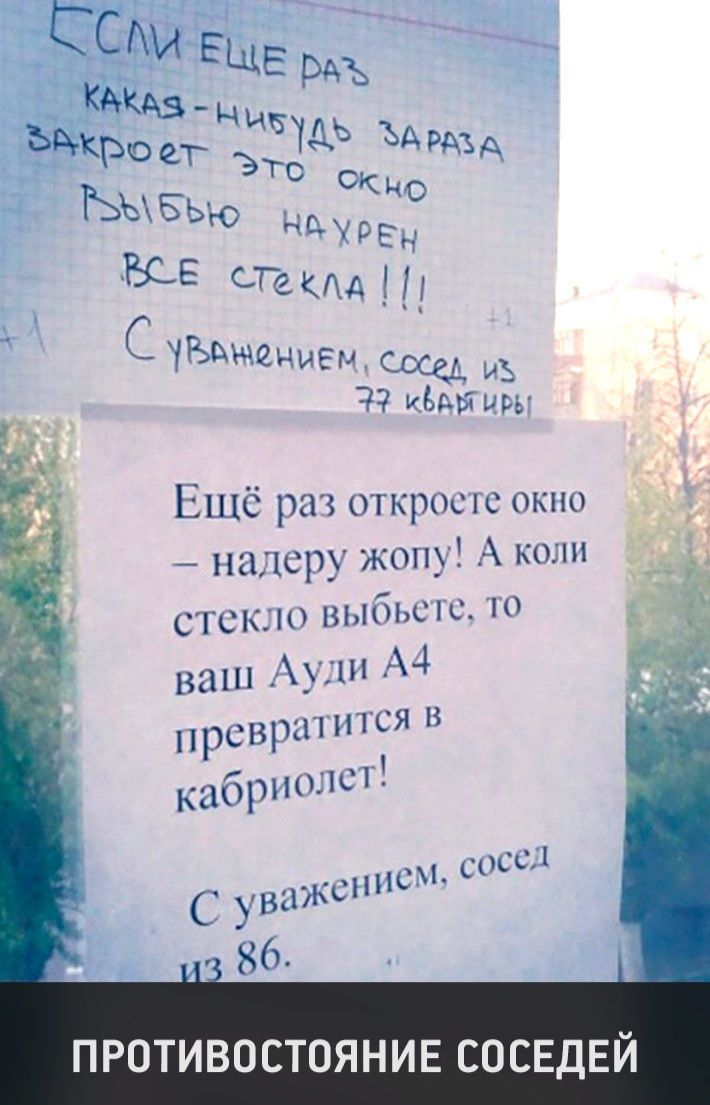 ЕСЛИ ЕЩЕ РАЗ
КАКАЯ-НИБУДЬ ЗАРАЗА
ЗАКРОЕТ ЭТО ОКНО
ВЫБЬЮ НАХРЕН
ВСЕ СТЕКЛА!!!
+1
+1
С УВАЖЕНИЕМ, СОСЕД ИЗ
77 КВАРТИРЫ
Ещё раз откроете окно
– надеру жопу! А коли
стекло выбьете, то
ваш Ауди А4
превратится в
кабриолет!
С уважением, сосед
из 86.
ПРОТИВОСТОЯНИЕ СОСЕДЕЙ